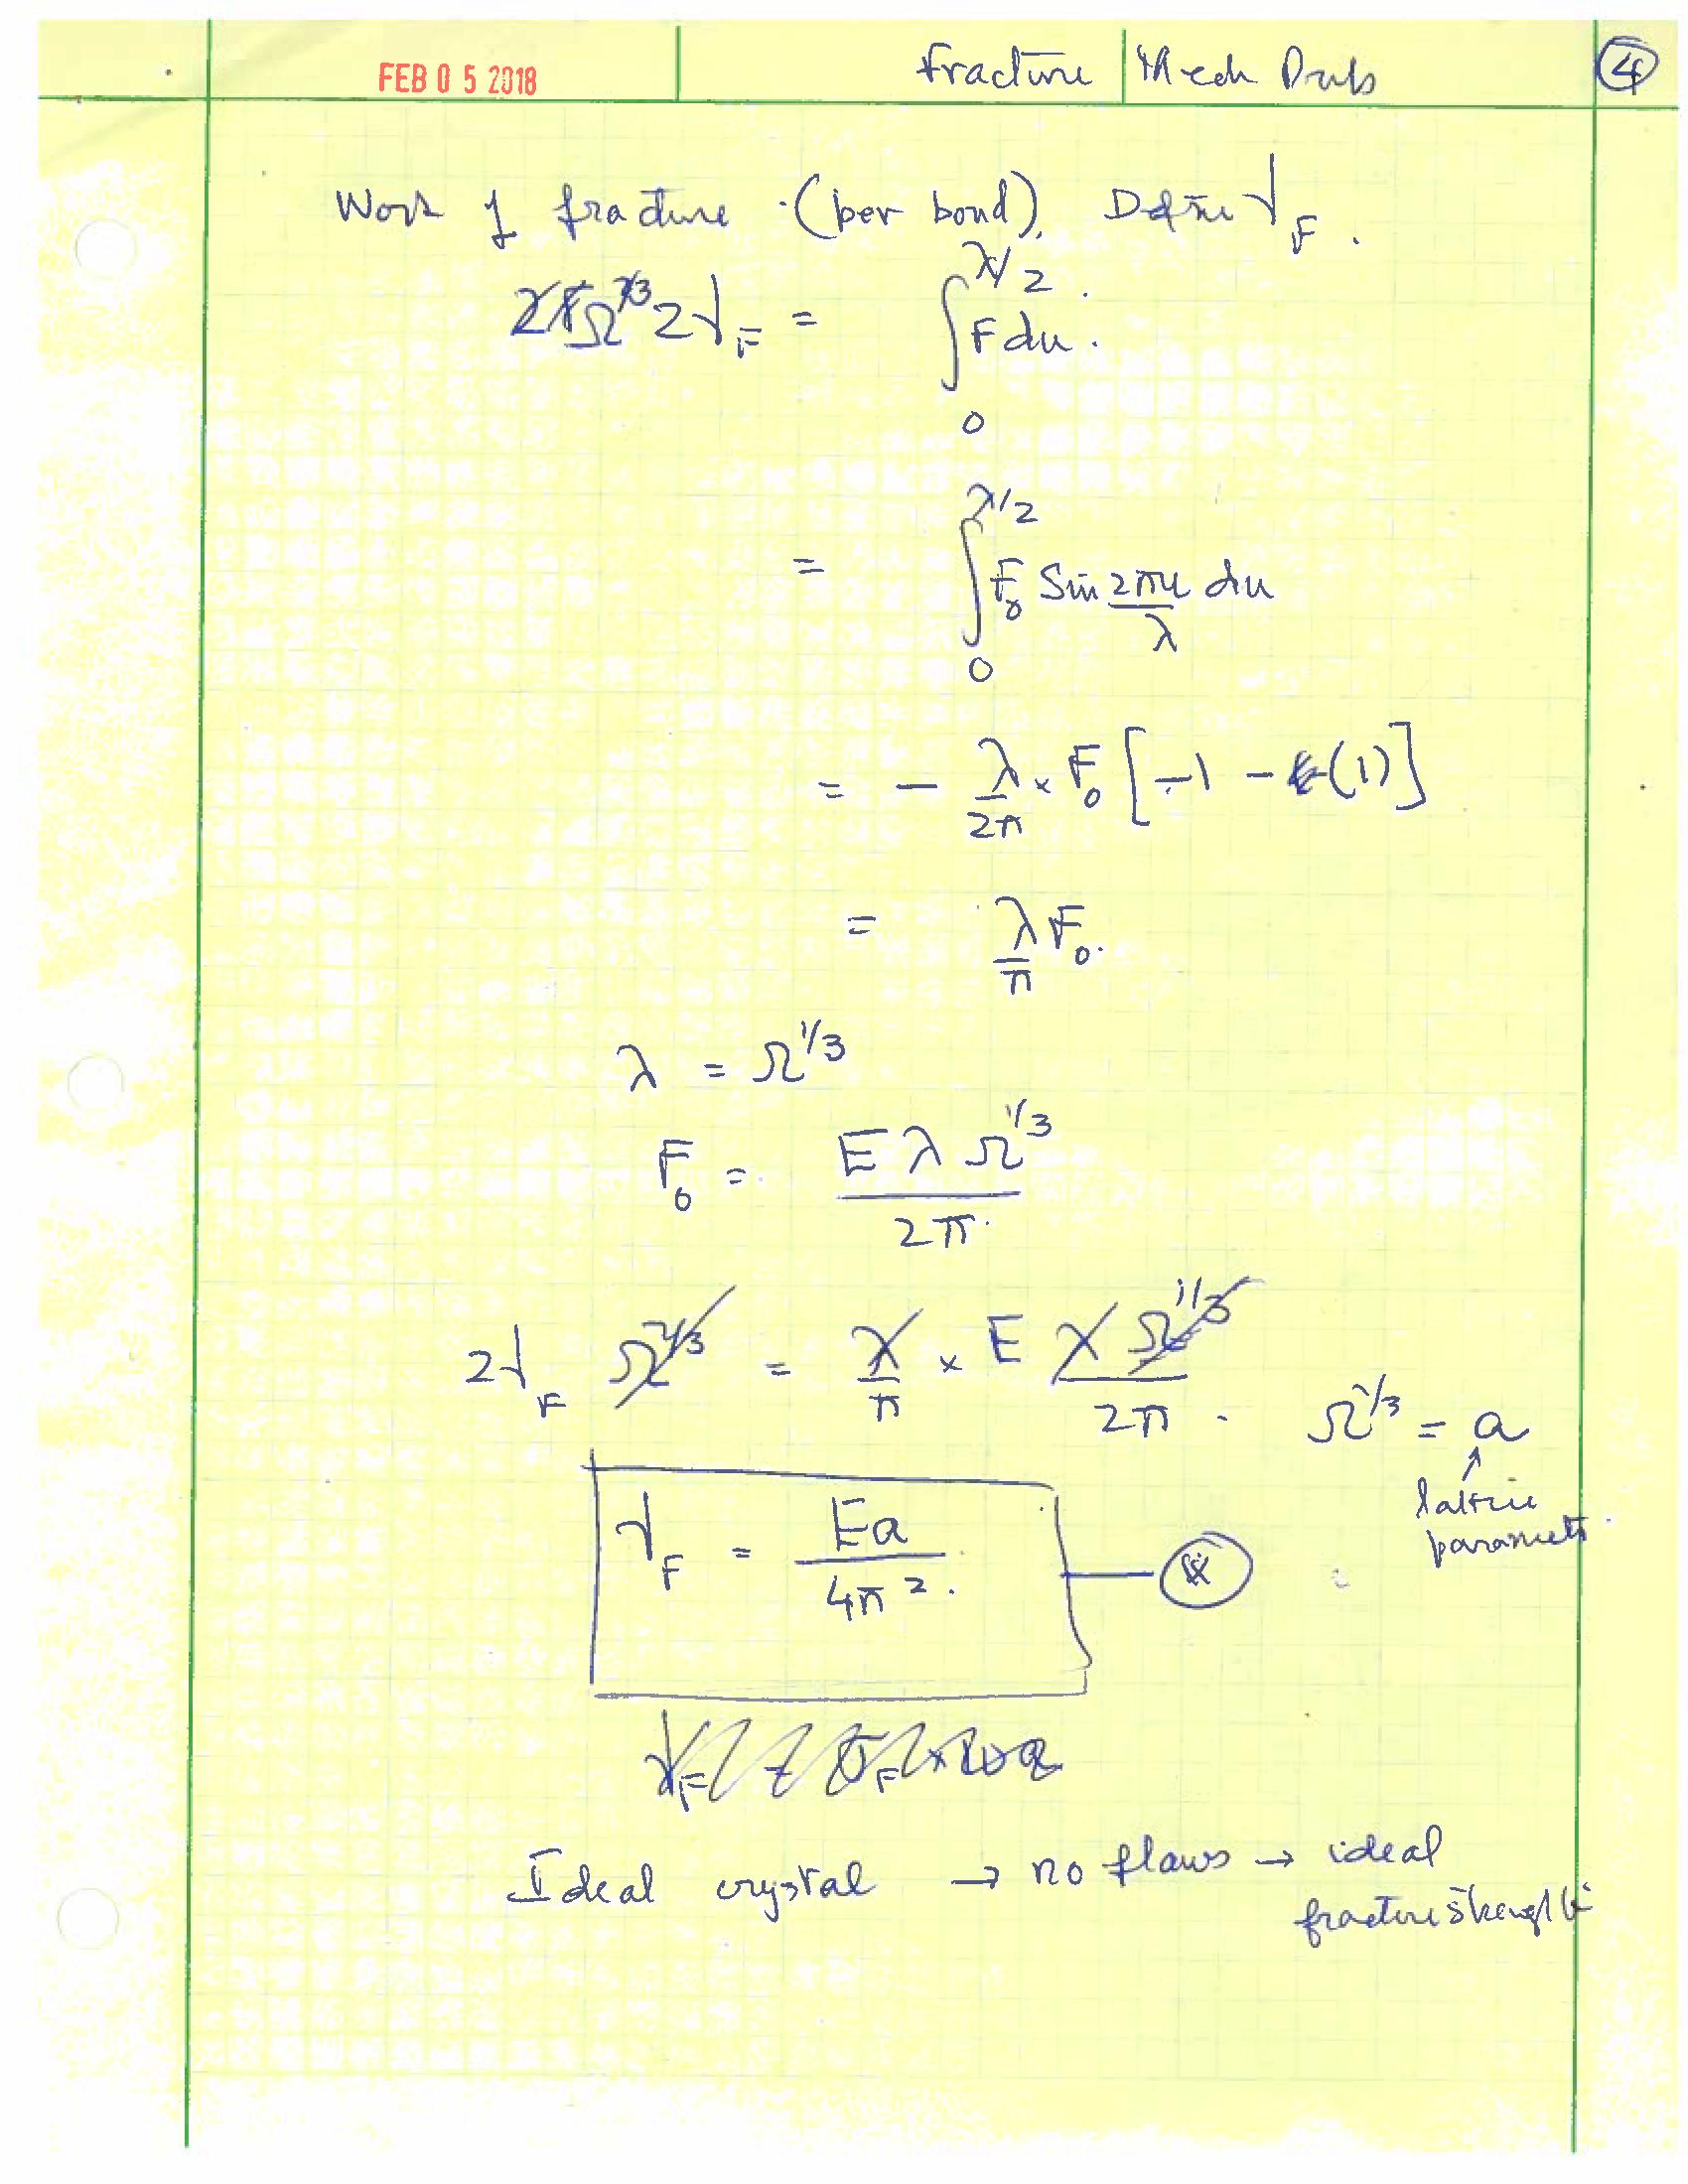 FEB 0 5 2018
Fracture | Mech Prots ④
Work of fracture (per bond). Define γ_F.
Ω^{2/3} 2γ_F = ∫_0^{λ/2} F du.
= ∫_0^{λ/2} F_0 Sin 2πu/λ du
= - λ/2π × F_0 [-1 - (1)]
= λ/π F_0.
λ = Ω^{1/3}
F_0 = E λ Ω^{1/3} / 2π.
2γ_F Ω^{2/3} = λ/π × E λ Ω^{1/3} / 2π.
Ω^{1/3} = a
↑
lattice
parameter
γ_F = Ea / 4π². —
Ideal crystal → no flaws → ideal
fracture strength